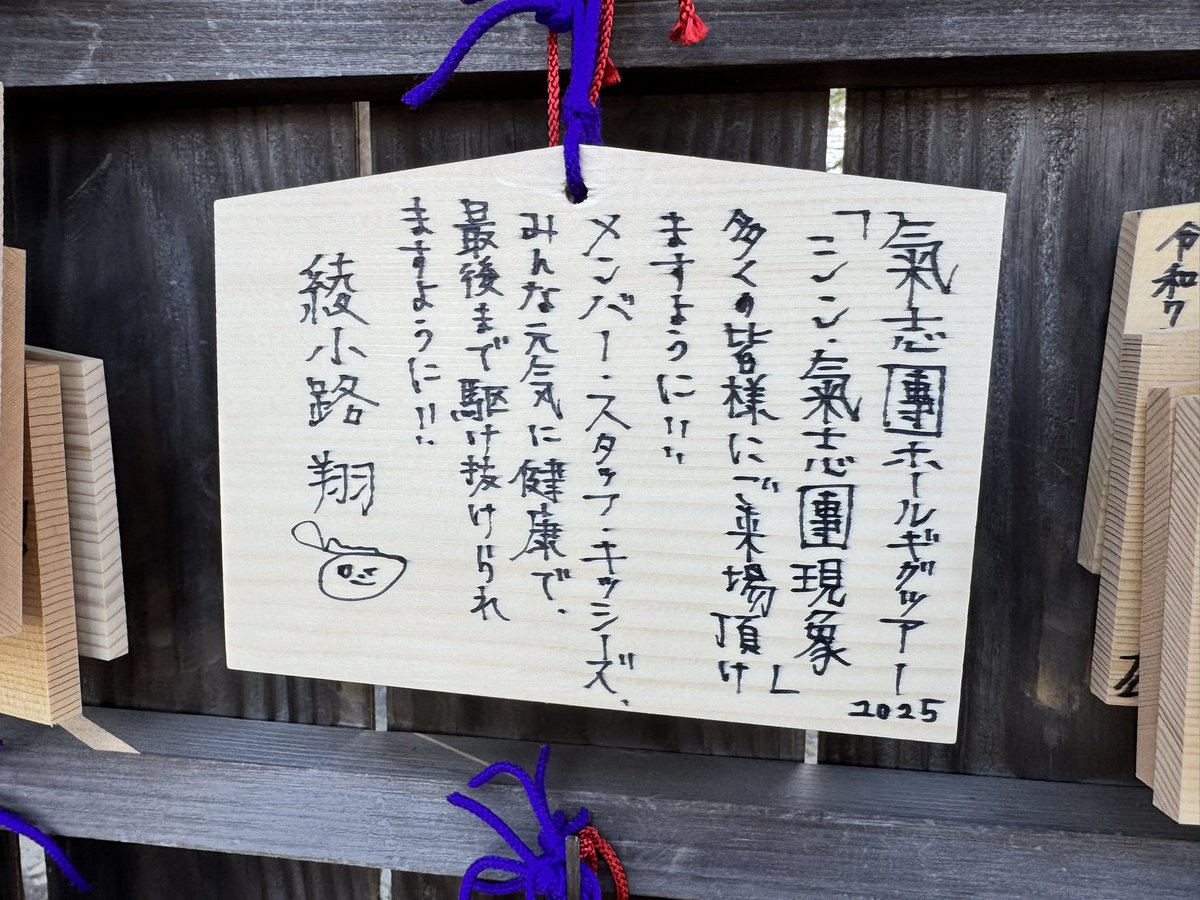 氣志團ホールギグツアー2025
「シン・氣志團現象」
多くの皆様にご来場頂け
ますように!!
メンバー・スタッフ・キッシーズ、
みんな元気に健康で、
最後まで駆け抜けられ
ますように!!
綾小路 翔
令和7